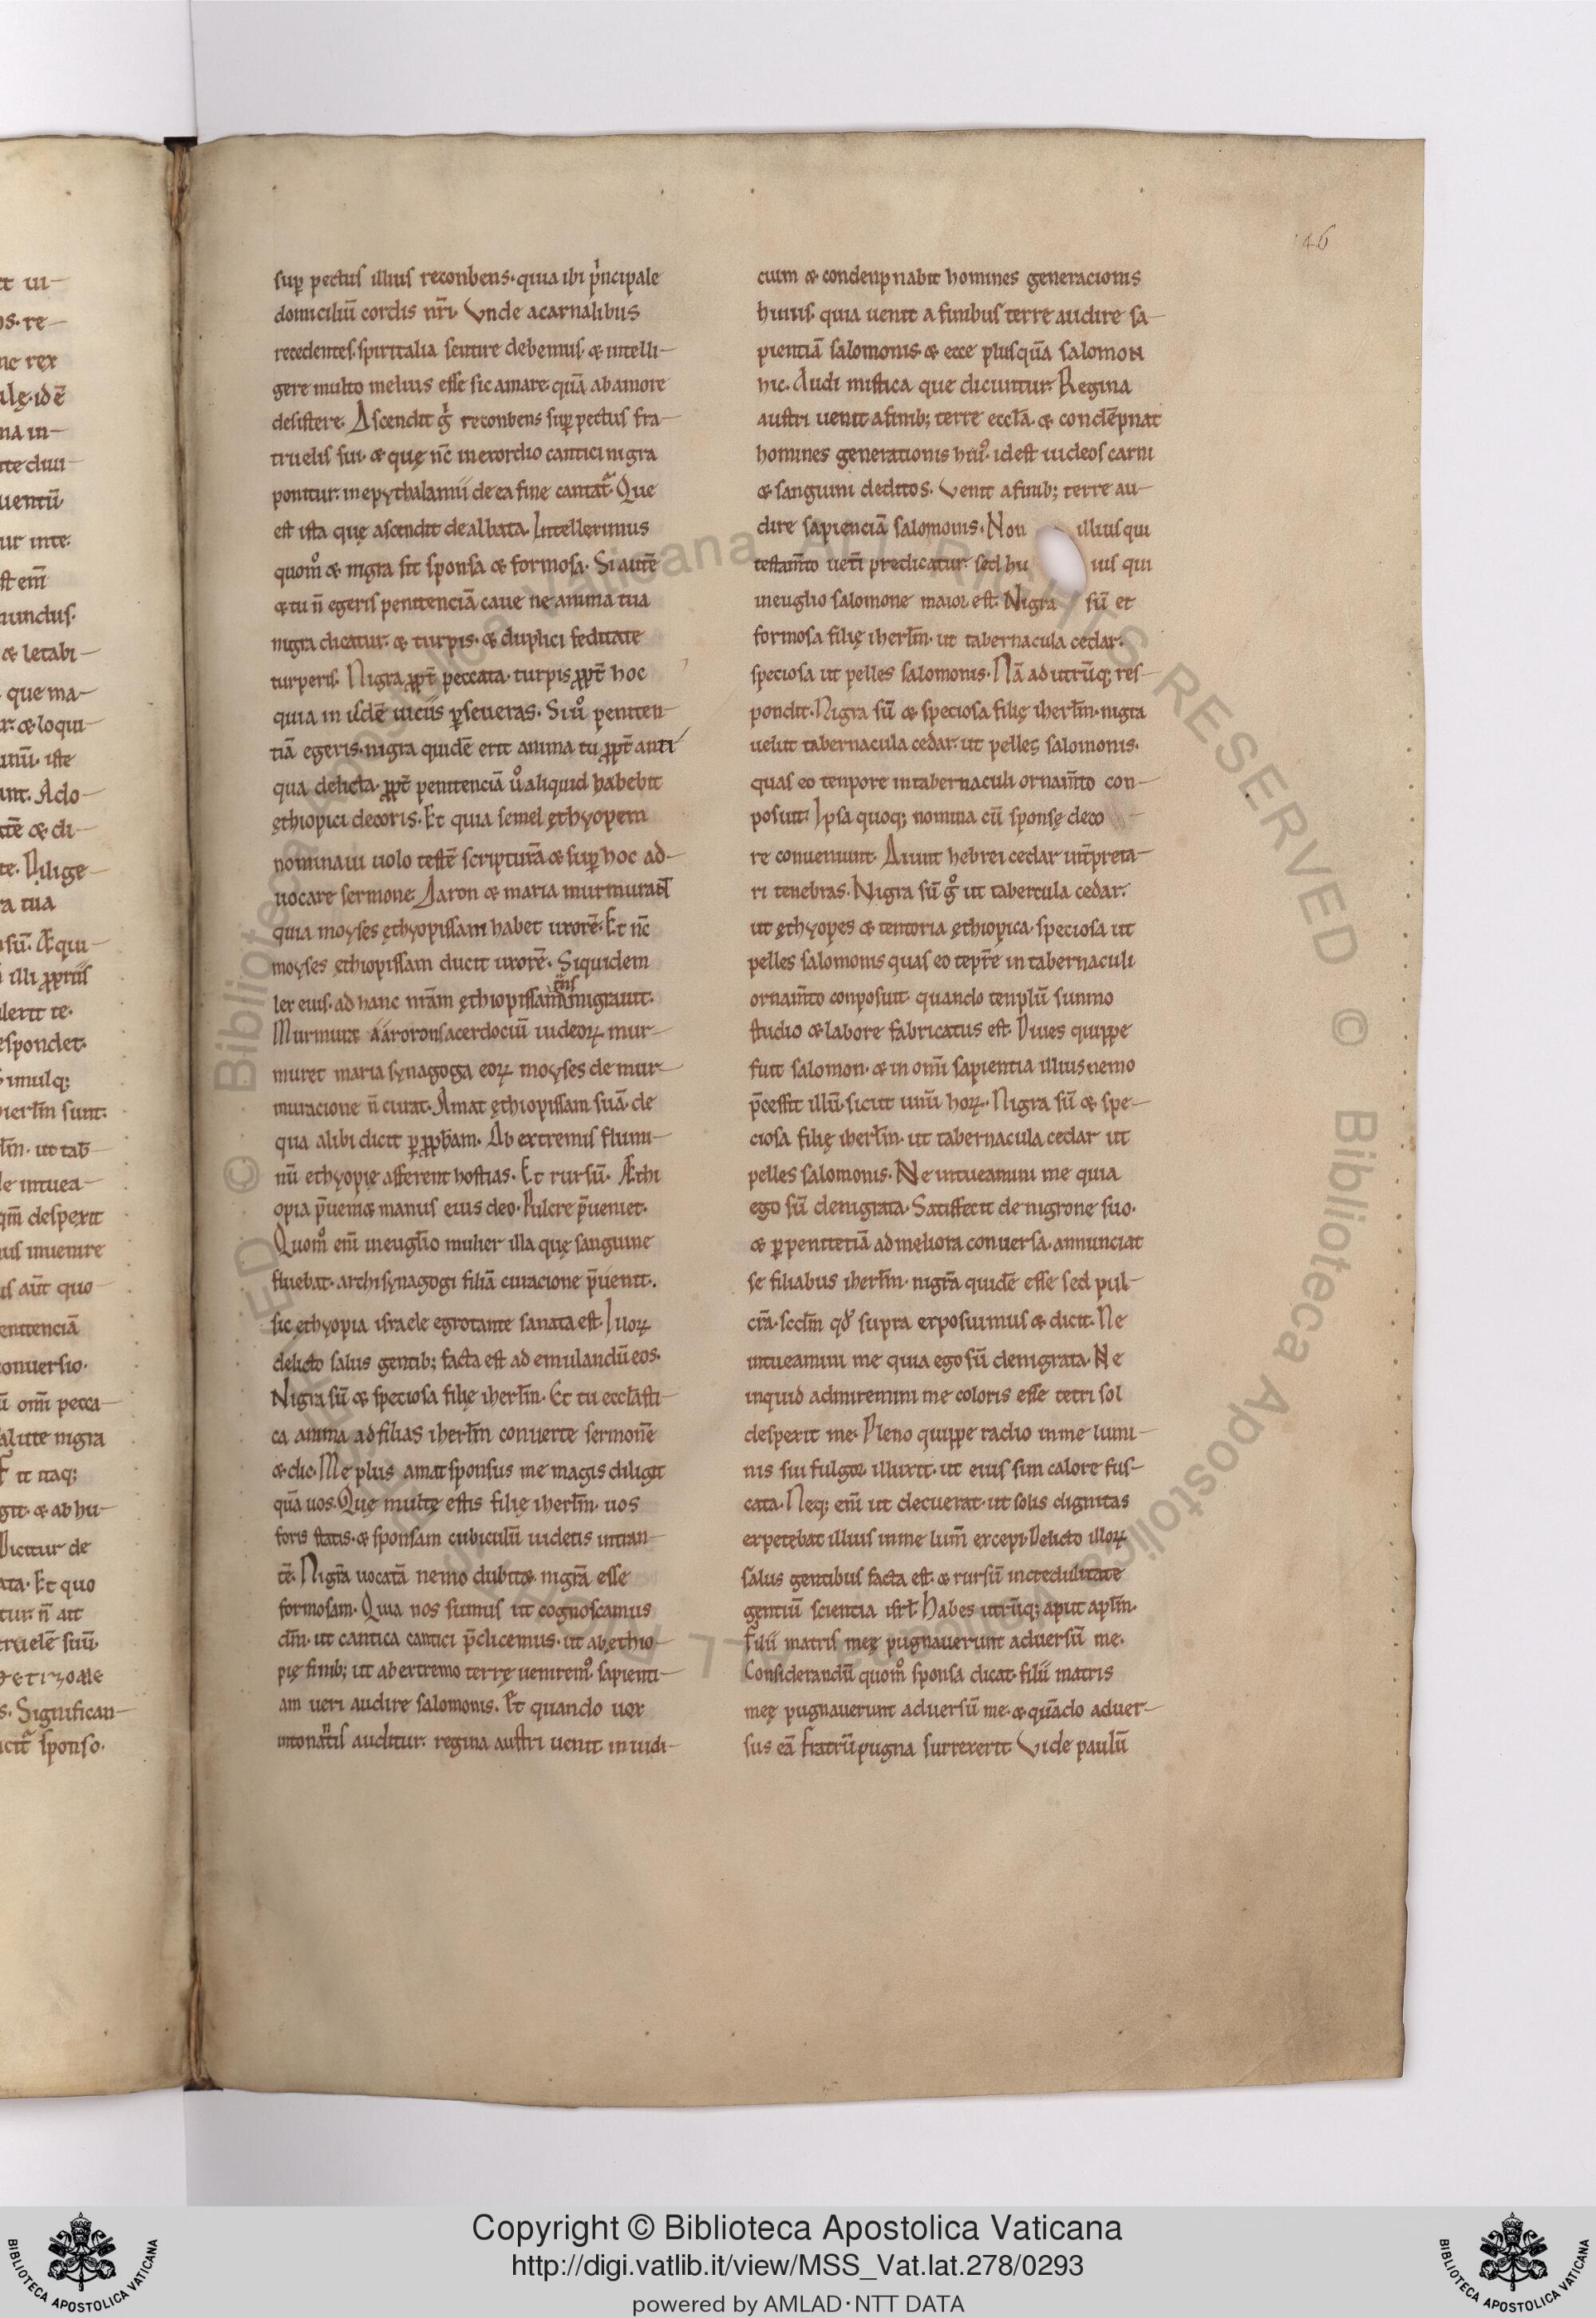 sup pectus illius reconbens. quia ibi p̄ncipale
domiciliū cordis nr̄i. Vnde a carnalibus
recedentes. spiritalia sentire debemus. & intelli-
gere multo melius esse sic amare. quā ab amore
desistere. Ascendit g̊ reconbens sup pectus fra-
truelis sui. & quę nc̄ in exordio cantici nigra
ponitur. in epythalamii de ea fine cantat᷑. Que
est ista quę ascendit dealbata. Intellexrimus
quom̊ & nigra sit sponsa & formosa. Si autē
& tu n̄ egeris penitenciā caue ne anima tua
nigra dicatur. & turpis. & duplici feditate
turperis. Nigra ꝓpt̄ peccata. turpis ꝓpt̄ hoc
quia in isdē uiciis ꝑseueras. Si ů peniten-
tiā egeris. nigra quidē erit anima tu ꝓpt̄ anti
qua delicta. ꝓpt̄ penitenciā ů aliquid habebit
ęthiopici decoris. Et quia semel ęthyopem
nominaui uolo testē scripturā & sup hoc ad-
uocare sermone. Aaron & maria murmurant̄
quia moyses ęthyopissam habet uxorē. Et nc̄
moyses ęthiopissam ducit uxorē. Siquidem
lex eius. ad hanc nr̄am ęthiopissam trāsmigrauit.
Murmuræ aároron sacerdociū iudeoꝝ mur-
muret maria synagoga eoꝝ moyses de mur-
muracione n̄ curat. Amat ęthiopissam suā. de
qua alibi dicit ꝑ ꝓph̄am. Ab extremis flumi-
nū ethyopię afferent hostias. Et rursū. Æthi
opia p̄ueni& manus eius deo. Pulcre p̄ueniet.
Quom̊ em̄ in eugl̄io mulier illa quę sanguine
fluebat. archisynagogi filiā curacione p̄uenit.
sic ęthyopia israele egrotante sanata est. Iuoꝝ
delicto salus gentib; facta est ad emulandū eos.
Nigra sū & speciosa filię iherl̄m. Et tu eccl̄asti-
ca anima ad filias iherl̄m conuerte sermonē
& dic. Me plus amat sponsus me magis diligit
quā uos. Quę multę estis filię iherl̄m. uos
foris statis. & sponsam cubiculū uidetis intran-
tē. Nigrā uocatā nemo dubit&. nigrā esse
formosam. Quia nos sumus ut cognoscamus
dm̄. ut cantica cantici p̄dicemus. ut ab ęthio-
pię finib; ut ab extremo terrę uenirem̊. sapienti-
am ueri audire salomonis. Et quando uox
intonatis auditur. regina austri uenit in iudi-
cium & condenpnabit homines generacionis
huius. quia uenit a finibus terre audire sa-
pientiā salomonis. & ecce plusquā salomon
hic. Audi mistica que dicuntur. Regina
austri uenit a finib; terre eccl̄a. & condēpnat
homines generationis hui᷒. id est iudeos carni
& sanguini deditos. Venit a finib; terre au-
dire sapienciā salomonis. Non illius qui
testam̄to uet̄i predicatur. sed hu ius qui
in euglio salomone maior est. Nigra sū et
formosa filię iherl̄m. ut tabernacula cedar.
speciosa ut pelles salomonis. Nā ad utrūq; res-
pondit. Nigra sū & speciosa filię iherl̄m. nigra
uelut tabernacula cedar. ut pelles salomonis.
quas eo tenpore in tabernaculi ornam̄to con-
posuit. Ipsa quoq; nomina cū sponsę deco-
re conueniunt. Aiunt hebrei cedar int̄preta-
ri tenebras. Nigra sū g̊ ut tabercula cedar.
ut ęthyopes & tentoria ęthiopica. speciosa ut
pelles salomonis quas eo tepr̄e in tabernaculi
ornam̄to conposuit. quando tenplū summo
studio & labore fabricatus est. Diues quippe
fuit salomon. & in om̄i sapientia illius nemo
p̄cessit illū. sicut unū hoꝝ. Nigra sū & spe-
ciosa filię iherl̄m. ut tabernacula cedar ut
pelles salomonis. Ne intueamini me quia
ego sū denigrata. Satisfecit de nigrone suo.
& ꝑ penitetiā ad meliora conuersa. annunciat
se filiabus iherl̄m. nigrā quidē esse sed pul-
crā. scdm̄ qđ supra exposuimus & dicit. Ne
intueamini me quia ego sū denigrata. Ne
inquid admiremini me coloris esse tetri sol
despexit me. Pleno quippe radio in me lumi-
nis sui fulgor illuxit. ut eius sim calore fus-
cata. Neq; em̄ ut decuerat. ut solis dignitas
expetebat illius in me lum̄ excepi. Delicto illoꝝ
salus gentibus facta est. & rursū incredulitate
gentiū scientia isrl̄. Habes utrūq; aput apl̄m.
Filii matris meę pugnauerunt aduersū me.
Considerandū quom̊ sponsa dicat. filii matris
meę pugnauerunt aduersū me. & quādo aduer-
sus eā fratrū pugna surrexerit. Vide paulū
Copyright © Biblioteca Apostolica Vaticana
http://digi.vatlib.it/view/MSS_Vat.lat.278/0293
powered by AMLAD·NTT DATA